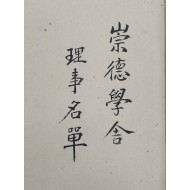 崇德學舍
理事名單